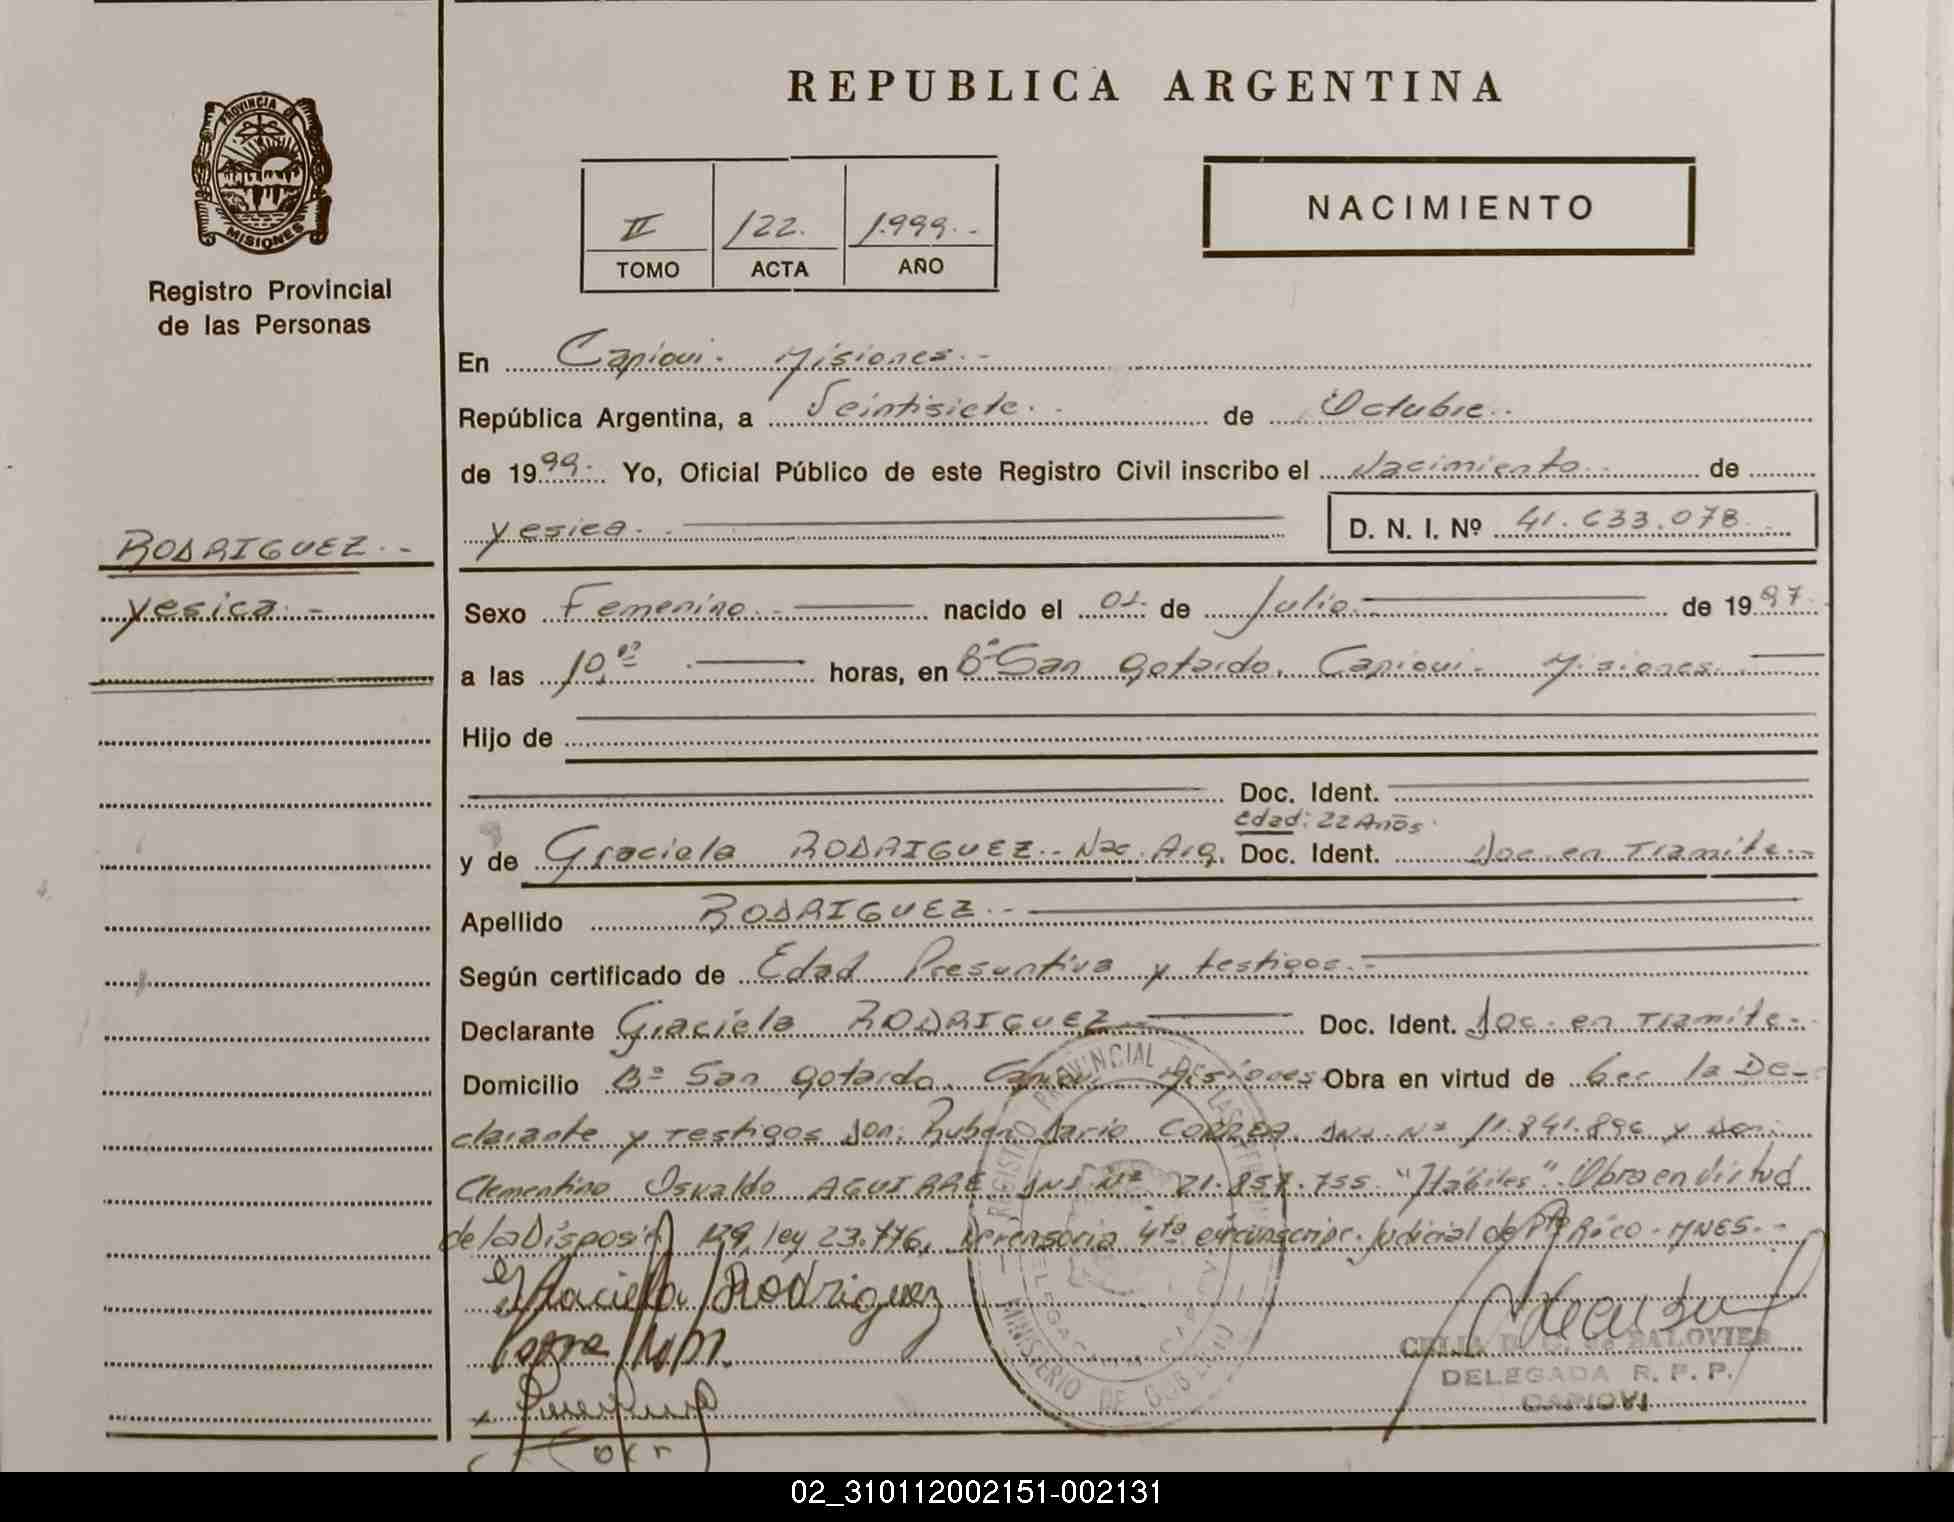 REPUBLICA ARGENTINA
PROVINCIA DE
MISIONES
Registro Provincial
de las Personas
II 122. 1.999.-
TOMO ACTA AÑO
NACIMIENTO
En Capiovi. Misiones.-
República Argentina, a Veintisiete. de Octubre.
de 1999. Yo, Oficial Público de este Registro Civil inscribo el Nacimiento de
Yesica. D. N. I. Nº 41.633.078.
RODRIGUEZ.-
Yesica.-
Sexo Femenino. nacido el 01. de Julio. de 1997.
a las 10, horas, en Bº San Gotardo. Capiovi. Misiones.
Hijo de
Doc. Ident.
Edad: 22 Años.
y de Graciela RODRIGUEZ.- Nac. Arg. Doc. Ident. Doc. en Tramite.-
Apellido RODRIGUEZ.-
Según certificado de Edad Presuntiva y testigos.-
Declarante Graciela RODRIGUEZ Doc. Ident. Doc. en Tramite.-
Domicilio Bº San Gotardo. Capiovi Misiones Obra en virtud de la De-
clarante y Testigos Don: Ruben Dario CORREA. DNI. Nº 11.841.896 y Don:
Clementino Osvaldo AGUIRRE DNI Nº 21.857.755. "Hábiles". Obra en Virtud
de la Disposic 129, ley 23.776, Defensoria 4ta circunscripc. Judicial de Pto Rico - MNES.-
Graciela Rodriguez
REGISTRO PROVINCIAL DE LAS PERSONAS
MINISTERIO DE GOBIERNO
DELEGADA R. P. P.
CAPIOVI
02_310112002151-002131